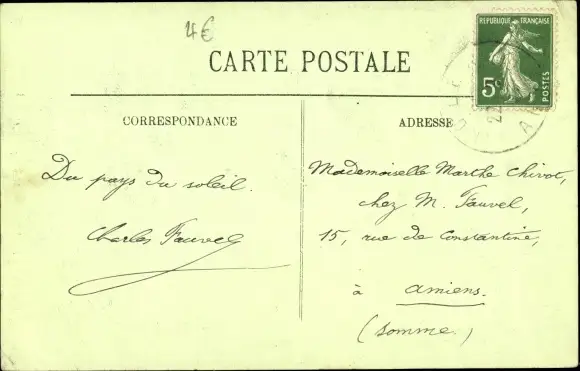 4€
CARTE POSTALE
RÉPUBLIQUE FRANÇAISE
5c
POSTES
CORRESPONDANCE
ADRESSE
Du pays du soleil.
Charles Fauvel
Mademoiselle Marthe Chivot,
chez M. Fauvel,
15, rue de Constantine,
à Amiens.
(Somme.)